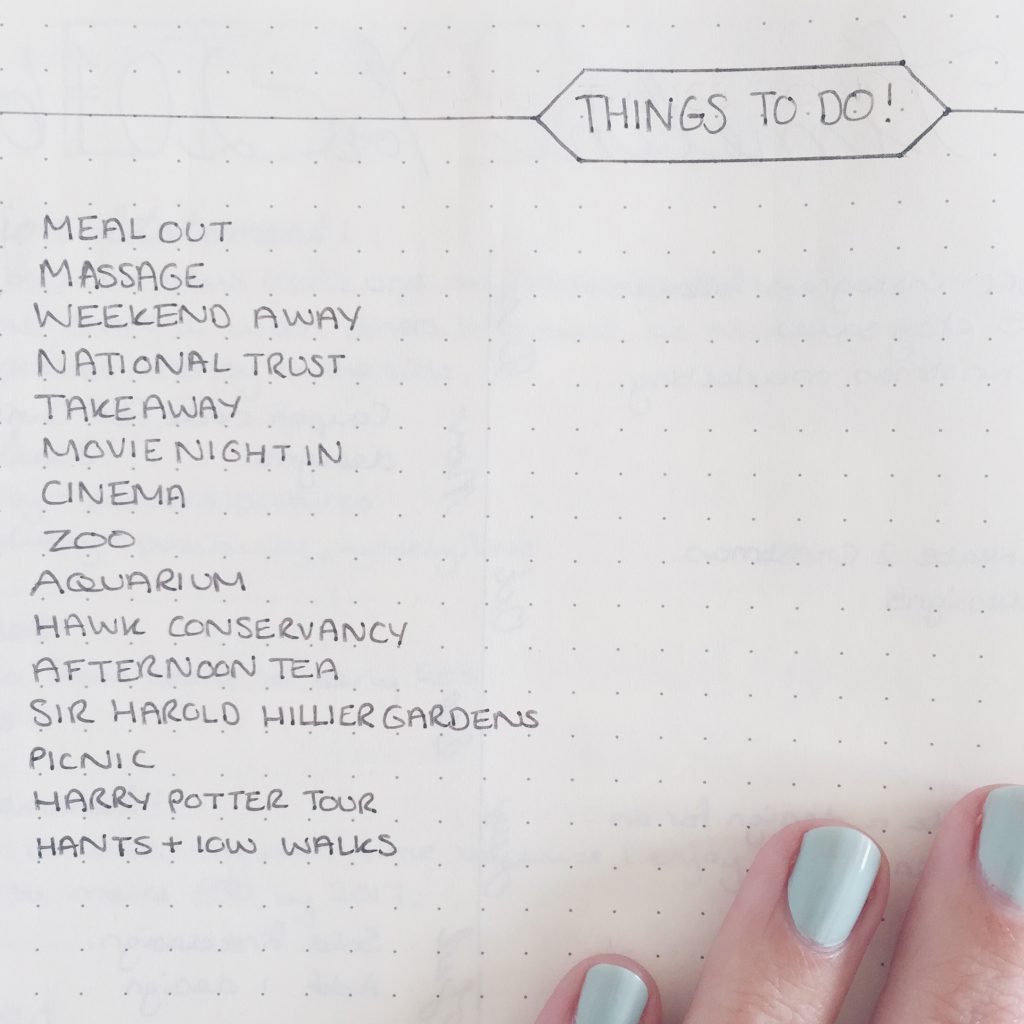 THINGS TO DO!
MEAL OUT
MASSAGE
WEEKEND AWAY
NATIONAL TRUST
TAKEAWAY
MOVIE NIGHT IN
CINEMA
ZOO
AQUARIUM
HAWK CONSERVANCY
AFTERNOON TEA
SIR HAROLD HILLIER GARDENS
PICNIC
HARRY POTTER TOUR
HANTS + IOW WALKS